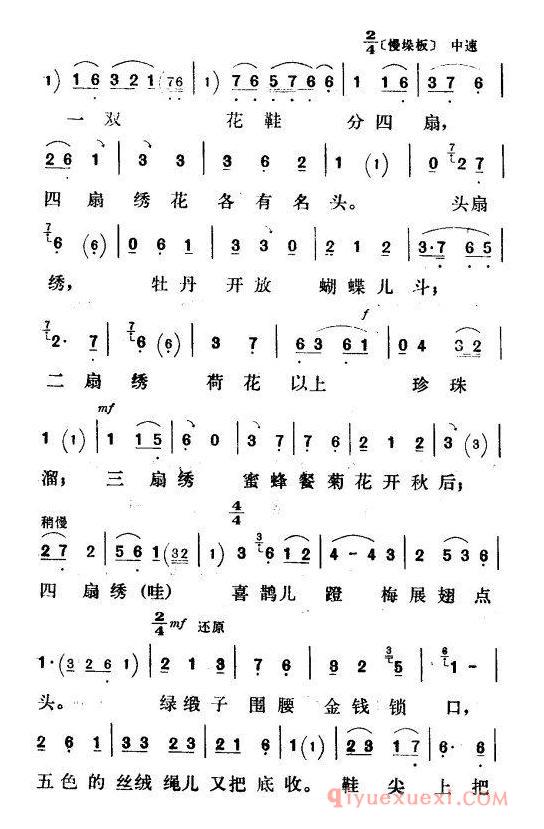 2/4〔慢垛板〕 中速
1) | 1 6 3 2 1 (7 6 | 1) 7 6 5 7 6 6 | 1 1 6 | 3 7 6 |
一双 花鞋 分四扇，
2 6 1 | 3 3 | 3 6 2 | 1 (1) | 0 2 7 |
四扇绣花各有名头。 头扇
6 (6) | 0 6 1 | 3 3 0 | 2 1 2 | 3·7 6 5 |
绣， 牡丹开放 蝴蝶儿斗；
f
2· 7 | 6 (6) | 3 7 | 6 3 6 1 | 0 4 3 2 |
二扇绣 荷花以上 珍珠
mf
1 (1) | 1 1 5 | 6 0 | 3 7 7 6 | 2 1 2 | 3 (3) |
溜；三扇绣 蜜蜂餐菊花开秋后；
稍慢 4/4
2 7 2 | 5 6 1 1 (3 2 | 1) 3 6 1 2 | 4 - 4 3 | 2 5 3 6 |
四扇绣(哇) 喜鹊儿蹬 梅展翅点
2/4 mf 还原
1·(3 2 6 1) | 2 1 3 | 7 6 | 3 2 5 | 1 - |
头。 绿缎子围腰金钱锁口，
2 6 1 | 3 3 2 3 3 | 2 2 3 1 7 | 6· 6 |
五色的丝绒绳儿又把底收。鞋尖上把
qiyuexuexi.com